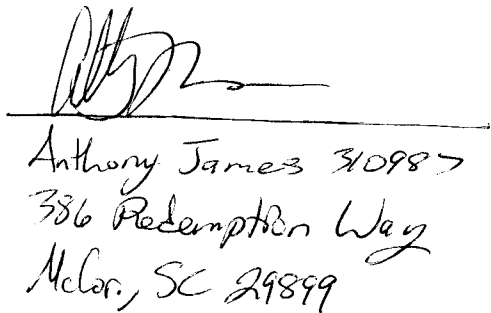 Anthony James 310987
386 Redemption Way
McCor., SC 29899